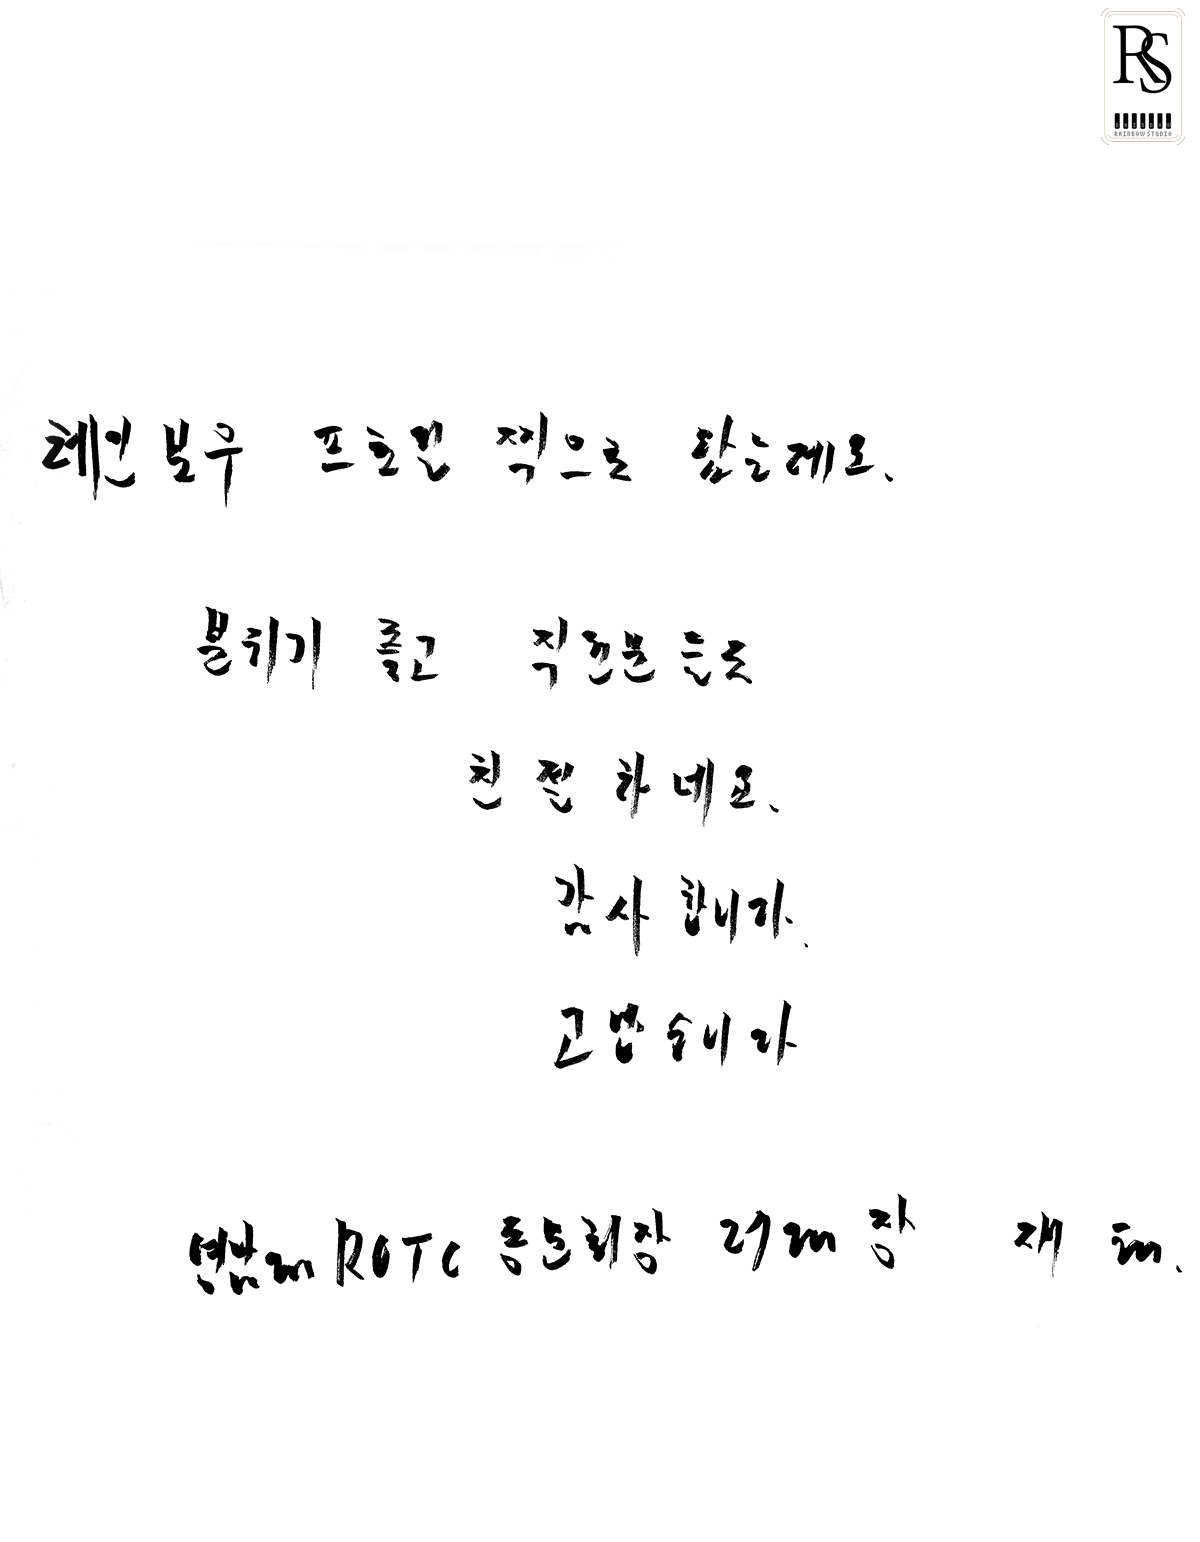 RS
RAINBOW STUDIO
레인보우 프로필 찍으로 왔는데요.
분위기 좋고 직원분들도
친절하네요.
감사합니다.
고맙습니다
ROTC 동문회장 장 재